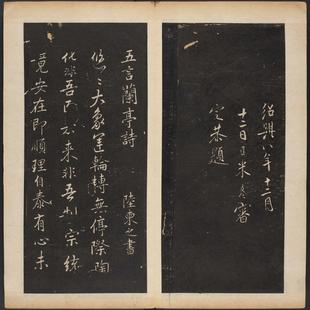 紹興八年十二月
十二日臣米友仁審
定恭題
五言蘭亭詩 陸柬之書
悠〻大象運輪轉無停際陶
化非吾因去來非吾制宗統
竟安在即順理自泰有心未